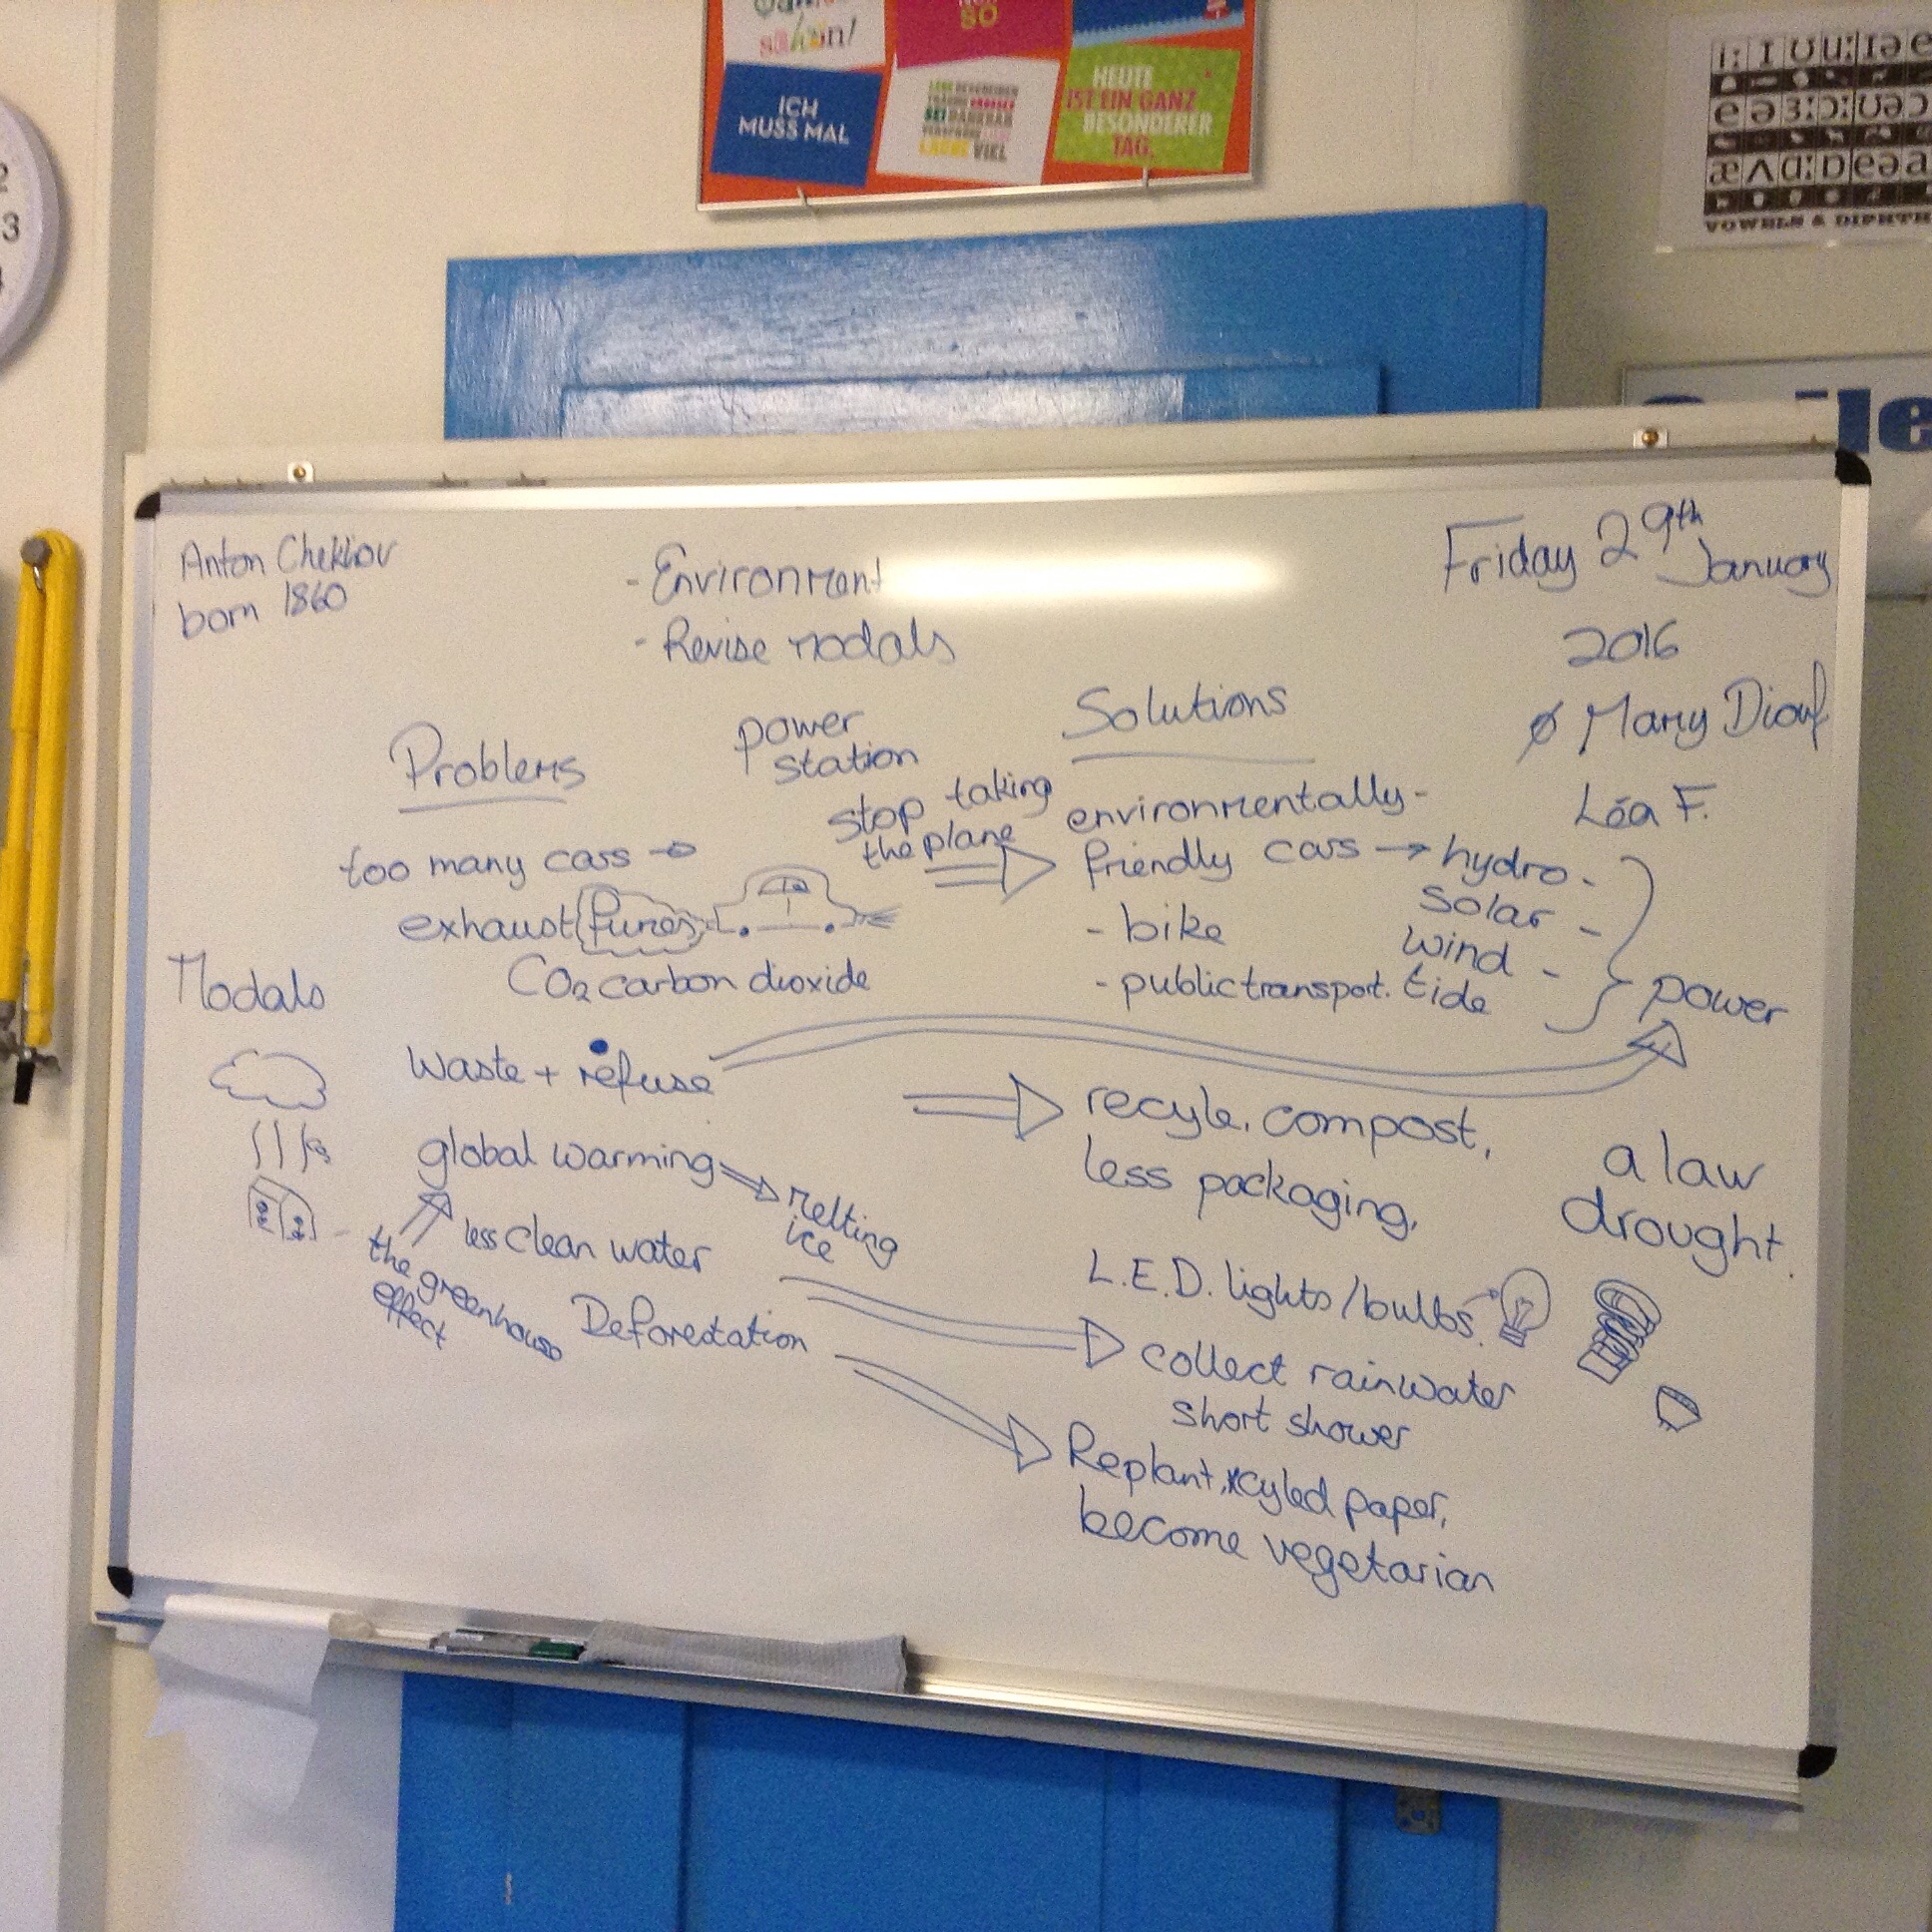 SO
ICH
MUSS MAL
VIEL
HEUTE
IST EIN GANZ
BESONDERER
TAG.
2
3
Anton Chekhov
born 1860
- Environment
- Revise modals
Friday 29th January
2016
ø Mamy Diouf
Léa F.
Problems
power
station
Solutions
stop taking
the plane
too many cars
exhaust fumes
CO2 carbon dioxide
environmentally-
friendly cars → hydro -
solar -
wind -
tide
power
- bike
- public transport.
Modals
waste + refuse
recyle, compost,
less packaging,
global warming
melting
ice
less clean water
the greenhouse
effect
Deforestation
a law
drought.
L.E.D. lights/bulbs.
collect rainwater
short shower
Replant, recyled paper,
become vegetarian